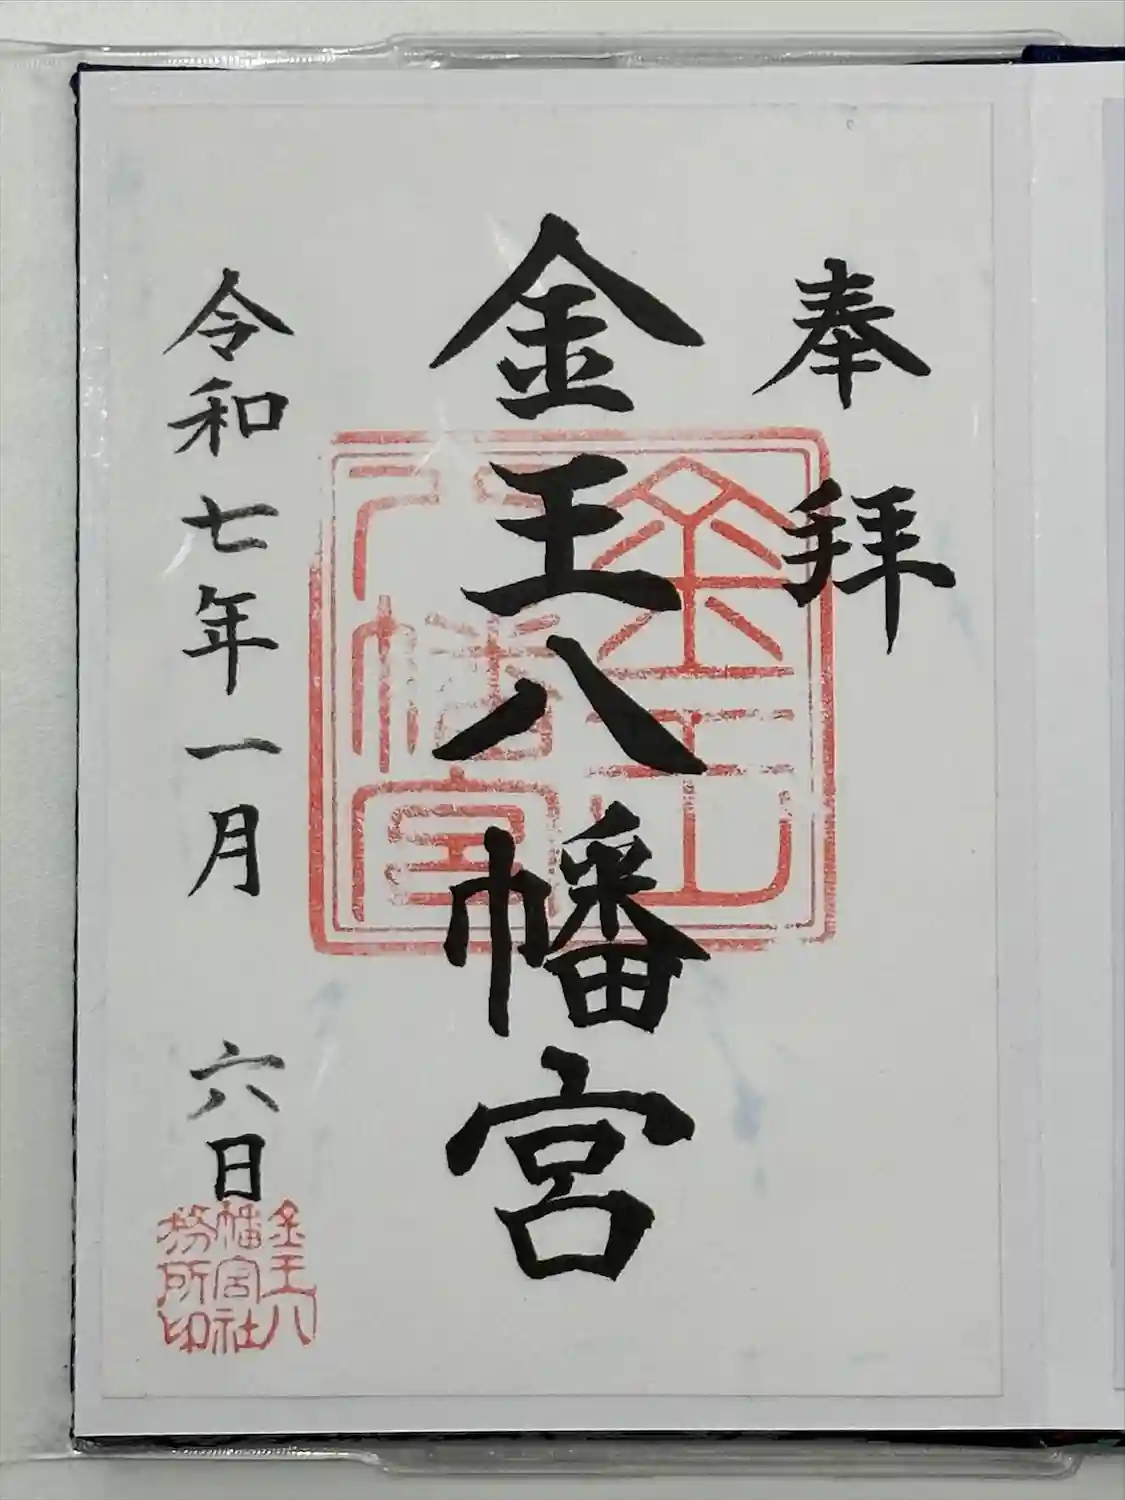 奉拝
金王八幡宮
令和七年一月六日
金王八幡宮
金王八
幡宮社
務所印